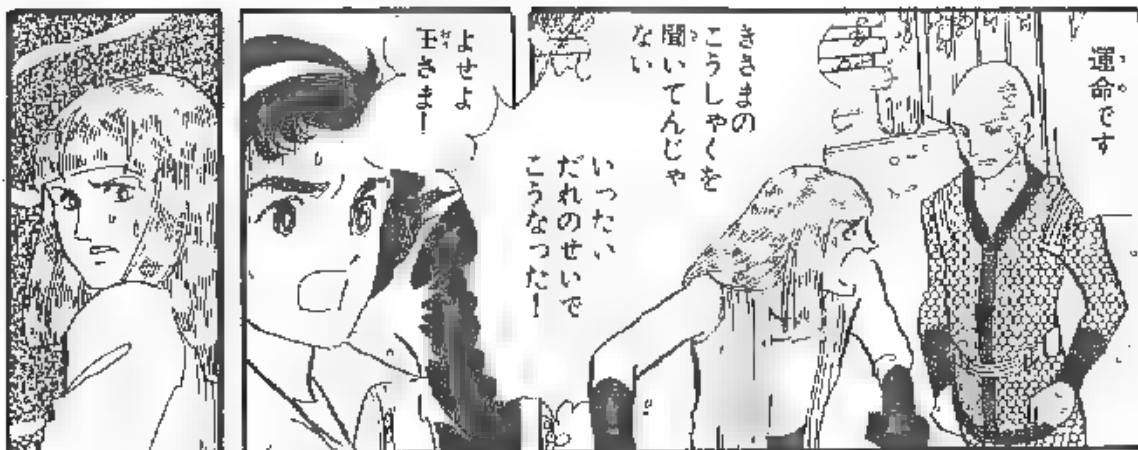 運命です
きさまの
こうしゃくを
聞いてんじゃ
ない
いったい
だれのせいで
こうなった!
よせよ
王さま!